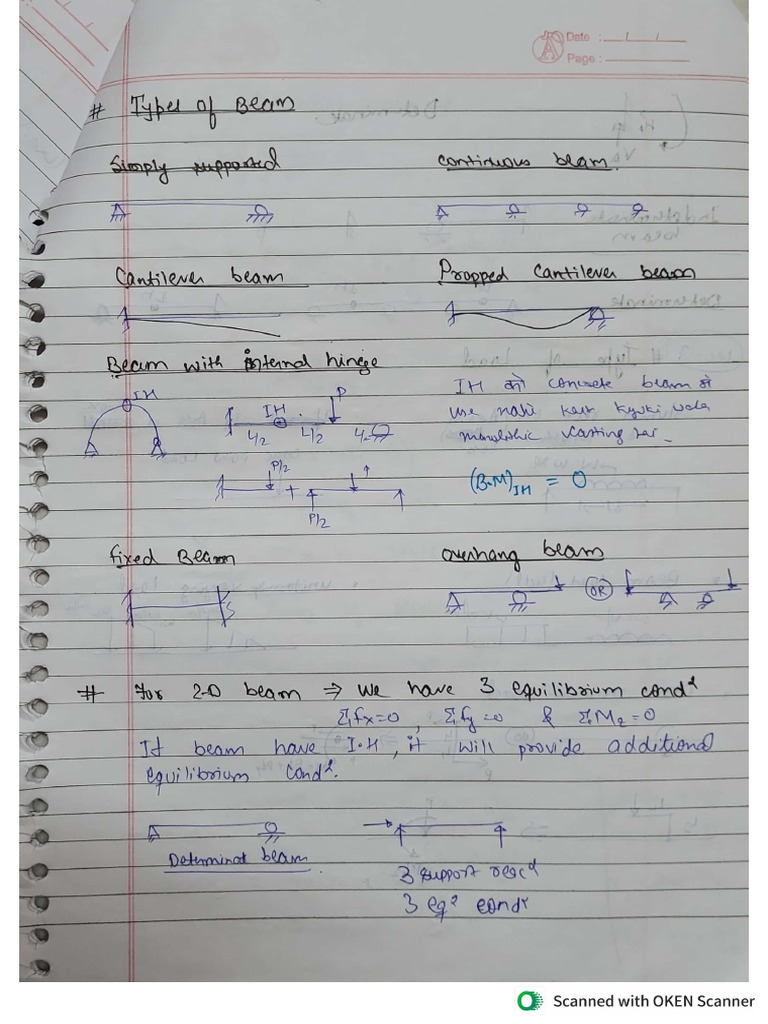 Date :
Page :
# Types of Beam
Simply supported
continuous beam.
Cantilever beam
Propped Cantilever beam
Beam with internal hinge
IH
IH
P
L/2 L/2
IH को concrete beam में
use nahi kart kyuki wala
monolithic casting hai
P/2
+
P/2
(B.M)IH = 0
fixed Beam
overhang beam
OR
# For 2-D beam ⇒ We have 3 equilibrium condⁿ
Σfx=0, Σfy=0 & ΣMz=0
If beam have I.H, it will provide additional
equilibrium condⁿ.
Determinat beam
3 support reacⁿ
3 eqⁿ condⁿ
Scanned with OKEN Scanner